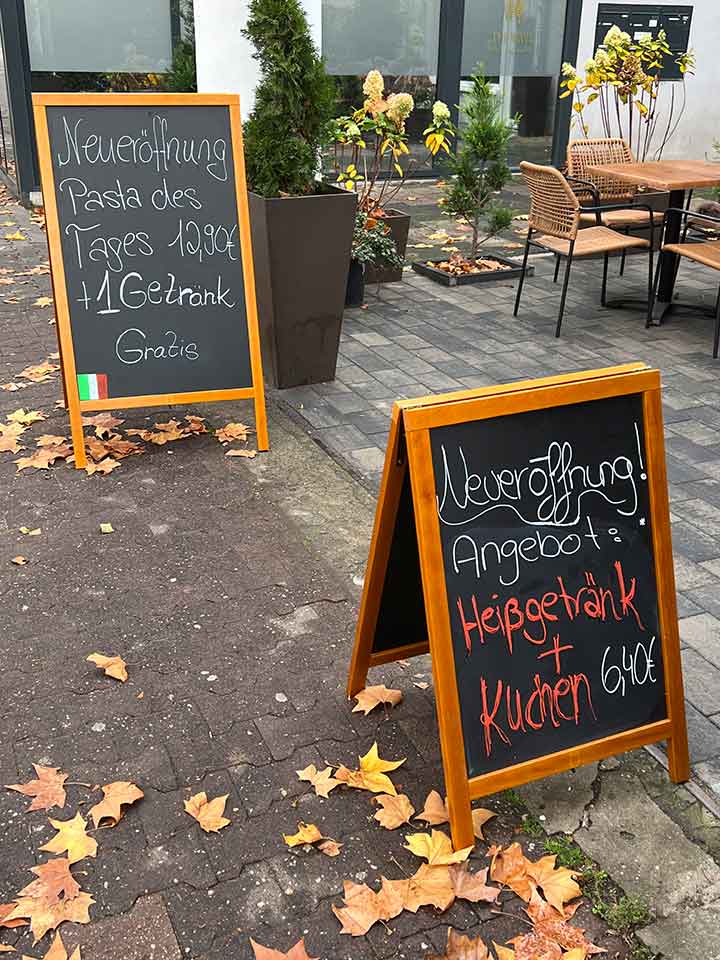 Neueröffnung
Pasta des
Tages 12,90€
+1 Getränk
Gratis
Neueröffnung!
Angebot:
Heißgetränk
+
Kuchen 6,40€